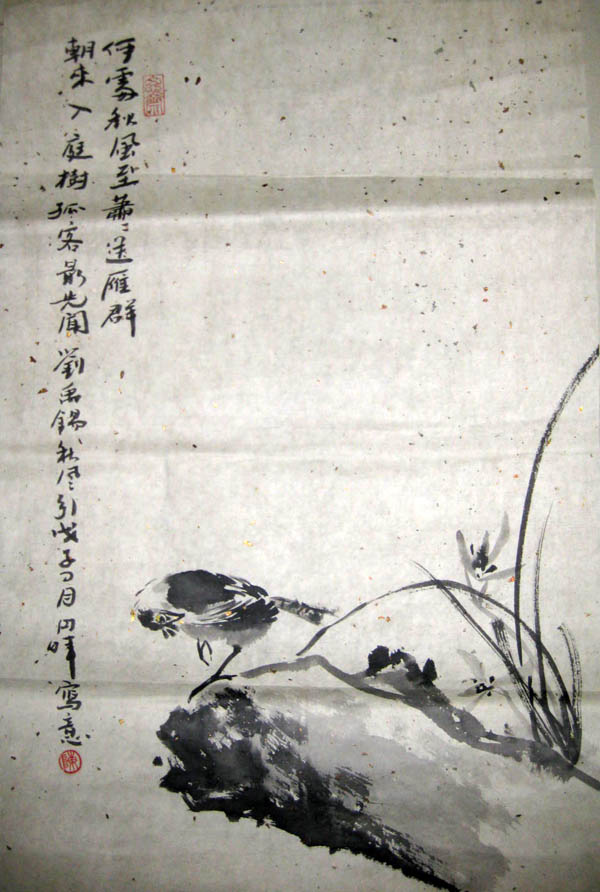 何處秋風至蕭〻送雁群
朝来入庭樹孤客最先聞 劉禹錫秋风引戊子月 寫意
陳